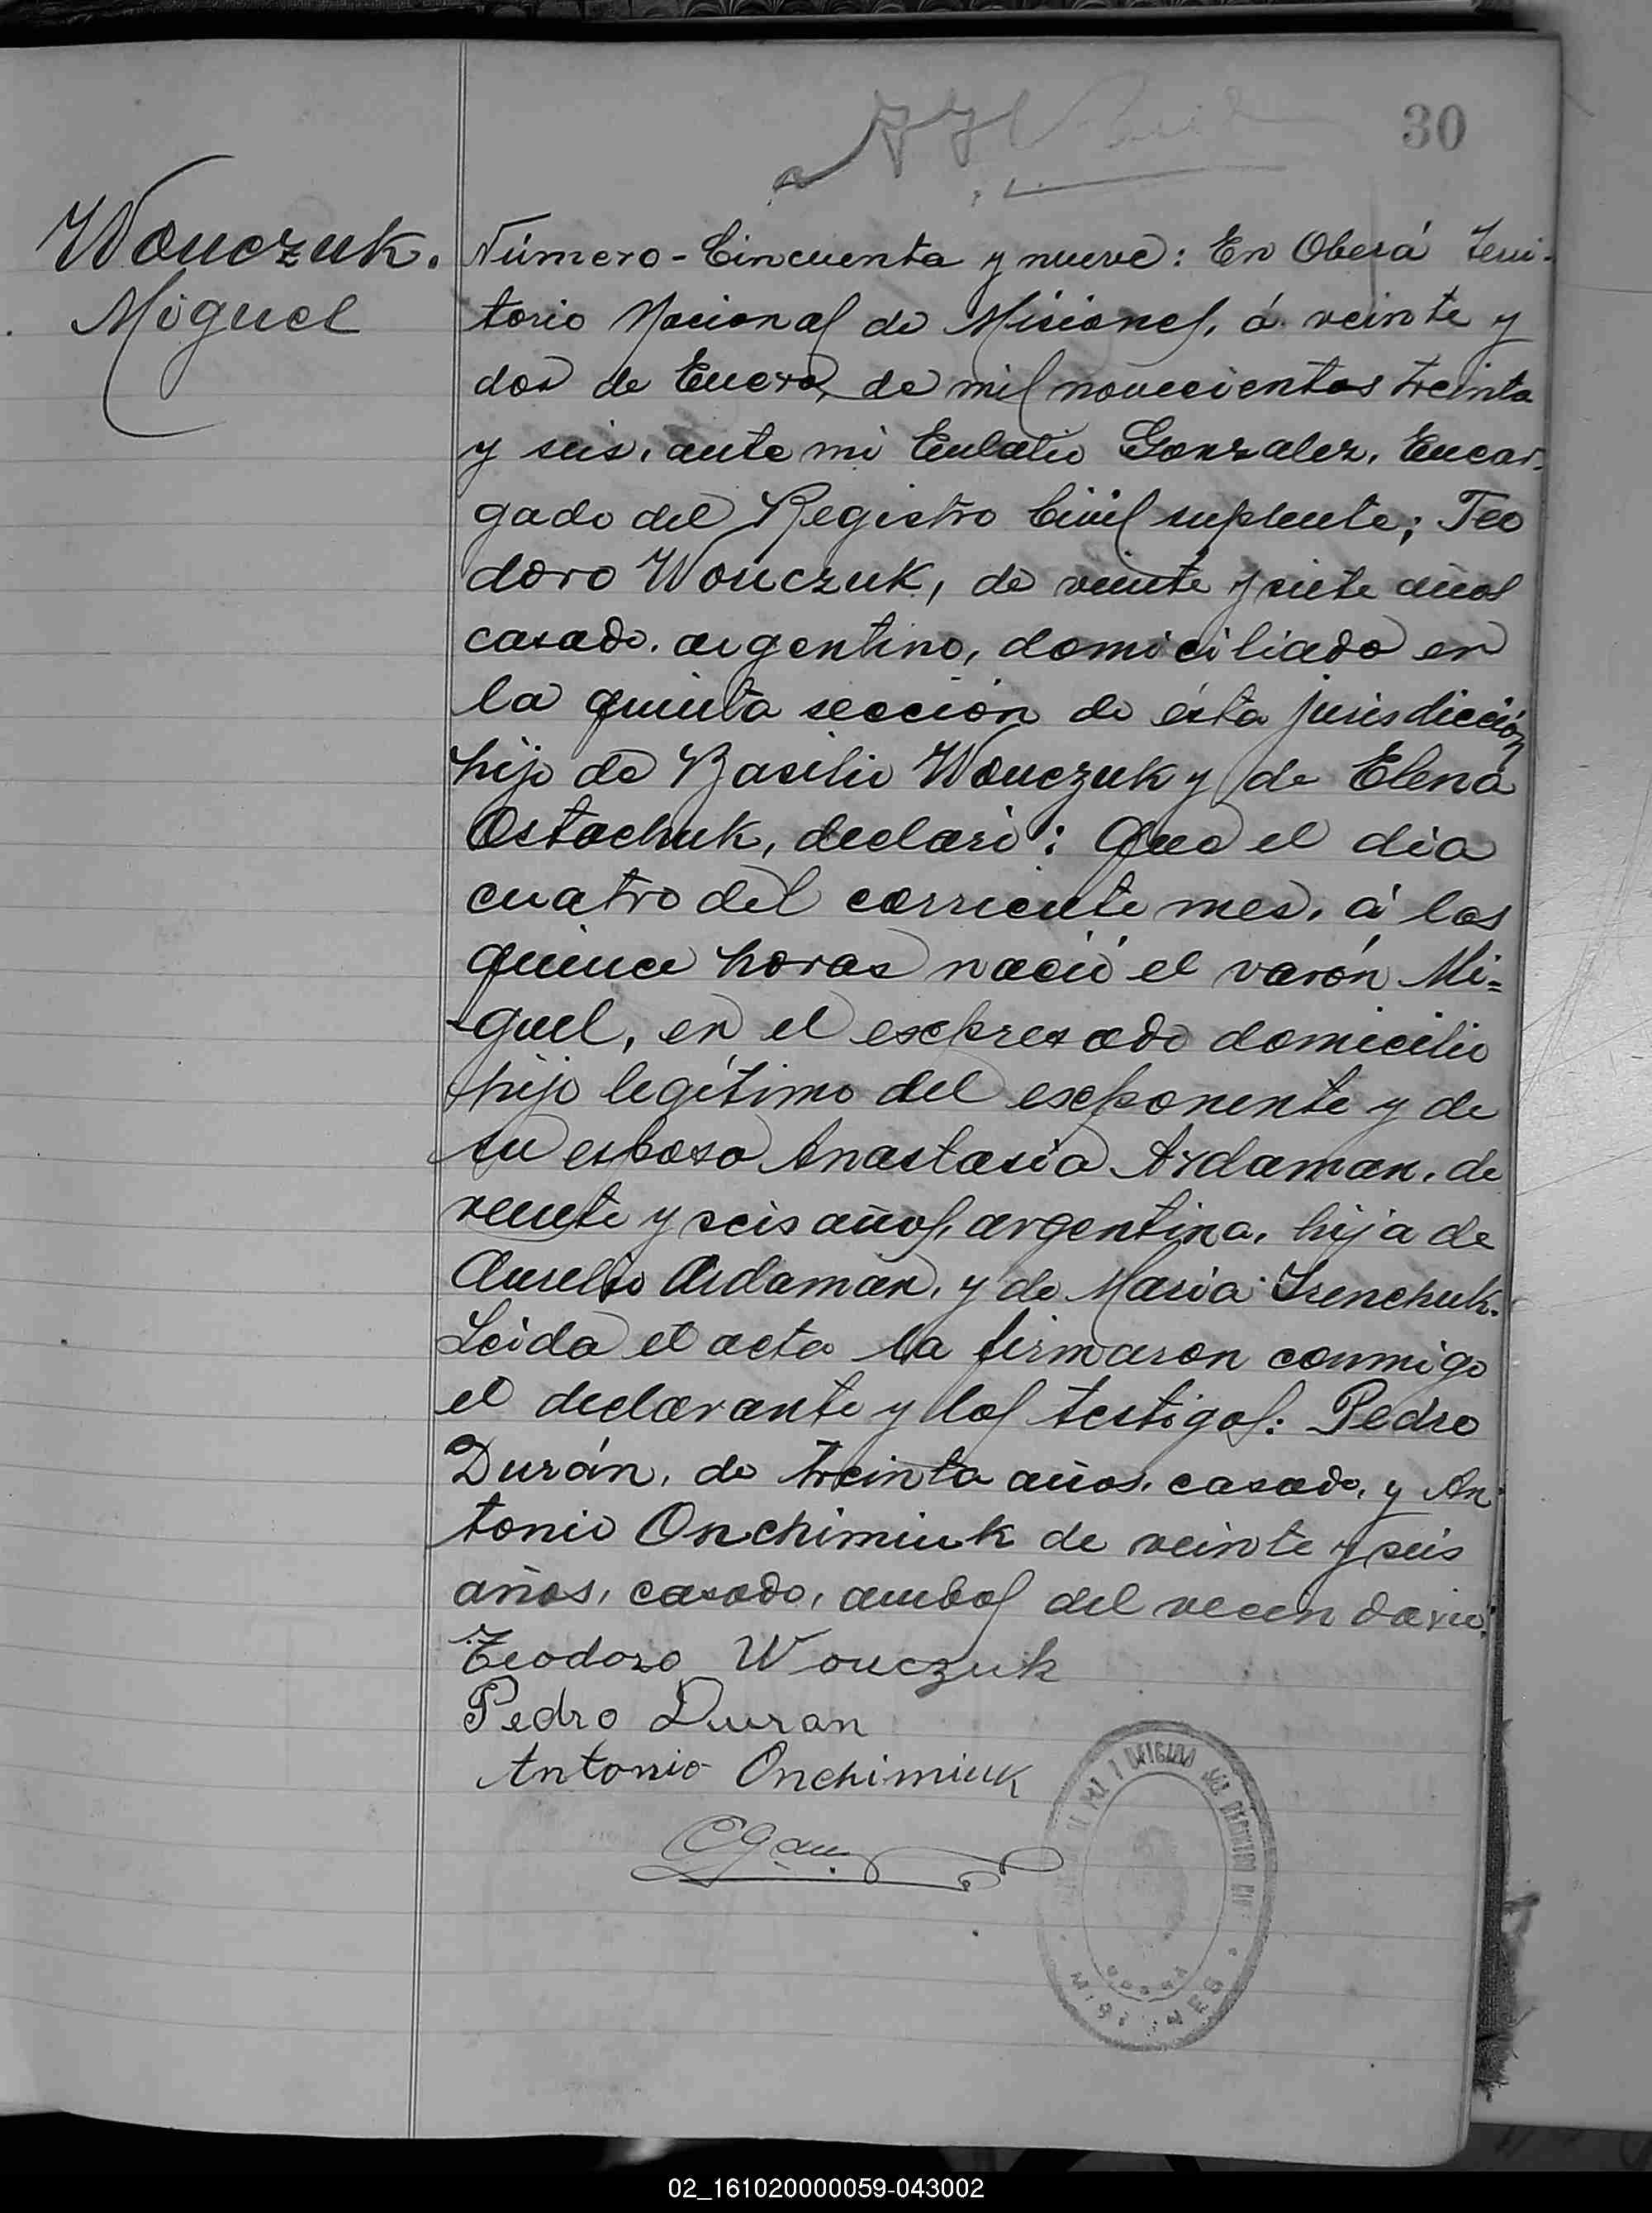 30
Wouczuk.
Miguel
Número-Cincuenta y nueve: En Oberá Terri-
torio Nacional de Misiones, á veinte y
dos de Enero, de mil novecientos treinta
y seis, ante mi Eulalio Gonzalez, Encar-
gado del Registro Civil suplente; Teo
doro Wouczuk, de veinte y siete años
casado, argentino, domiciliado en
la quinta sección de ésta jurisdicción
hijo de Basilio Wouczuk y de Elena
Ostachuk, declaró: Que el dia
cuatro del corriente mes, á las
quince horas nació el varón Mi=
-guel, en el expresado domicilio
hijo legítimo del exponente y de
su esposa Anastasia Ardaman, de
veinte y seis años, argentina, hija de
Aurelio Ardaman, y de Maria Irenchuk.
Leida el acta la firmaron conmigo
el declarante y los testigos: Pedro
Durán, de treinta años, casado, y An-
tonio Onchimiuk de veinte y seis
años, casado, ambos del vecindario.
Teodoro Wouczuk
Pedro Duran
Antonio Onchimiuk
MISIONES
02_161020000059-043002